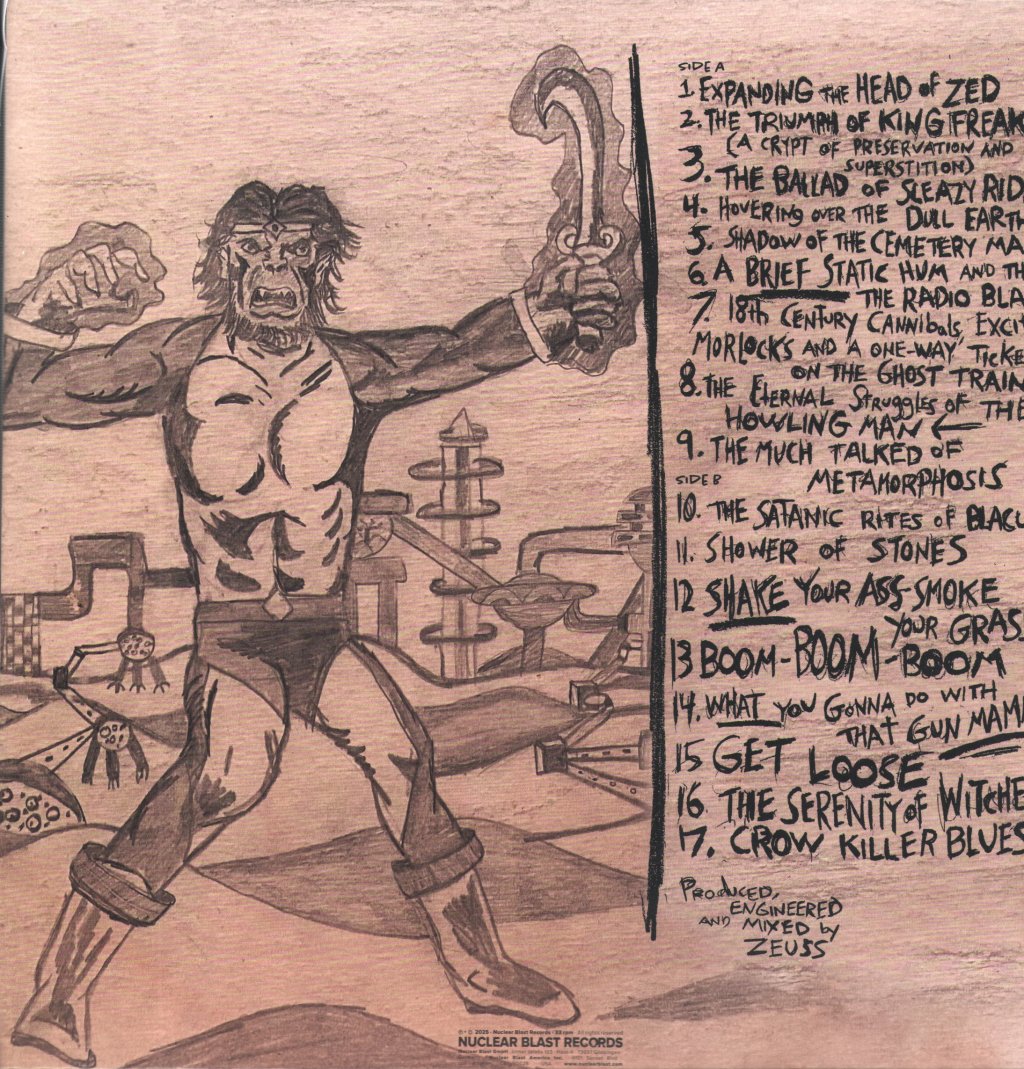 SIDE A
1. EXPANDING THE HEAD OF ZED
2. THE TRIUMPH OF KING FREAK
(A CRYPT OF PRESERVATION AND
SUPERSTITION)
3. THE BALLAD OF SLEAZY RID
4. HOVERING OVER THE DULL EARTH
5. SHADOW OF THE CEMETERY MA
6. A BRIEF STATIC HUM AND TH
THE RADIO BLA
7. 18th CENTURY CANNIBALS, EXCIT
MORLOCKS AND A ONE-WAY TICKE
ON THE GHOST TRAIN
8. THE ETERNAL STRUGGLES OF THE
HOWLING MAN ←
9. THE MUCH TALKED OF
METAMORPHOSIS
SIDE B
10. THE SATANIC RITES OF BLACU
11. SHOWER OF STONES
12 SHAKE YOUR ASS-SMOKE
YOUR GRAS
13 BOOM-BOOM-BOOM
14. WHAT YOU GONNA DO WITH
THAT GUN MAM
15 GET LOOSE
16 THE SERENITY OF WITCHE
17. CROW KILLER BLUES
PRODUCED,
ENGINEERED
AND MIXED by
ZEUSS
Nuclear Blast Records · 33 rpm All rights reserved
NUCLEAR BLAST RECORDS
Nuclear Blast GmbH
Nuclear Blast America, Inc.
USA www.nuclearblast.com